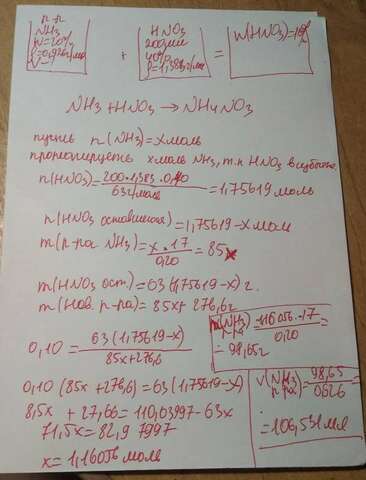 р-р
NH₃
W=20%
ρ=0,926г/мл
V-
+
HNO₃
200мл
40%
ρ=1,383г/мл
=
W(HNO₃)=10%
NH₃+HNO₃→NH₄NO₃
пусть n(NH₃)=x моль
прореагирует x моль NH₃, т.к HNO₃ в избытке
n(HNO₃)=200·1,383·0,40/63г/моль=1,75619 моль
n(HNO₃ оставшегося)=1,75619-x моль
m(р-ра NH₃)=x·17/0,20=85x
m(HNO₃ ост.)=63(1,75619-x) г.
m(нов. р-ра)=85x+276,6г
0,10=63(1,75619-x)/85x+276,6
0,10(85x+276,6)=63(1,75619-x)
8,5x+27,66=110,63997-63x
71,5x=82,97997
x=1,16056 моль
m(NH₃)=1,16056·17/0,20=
=98,65г
V(NH₃ р-ра)=98,65/0,926=
=106,531мл